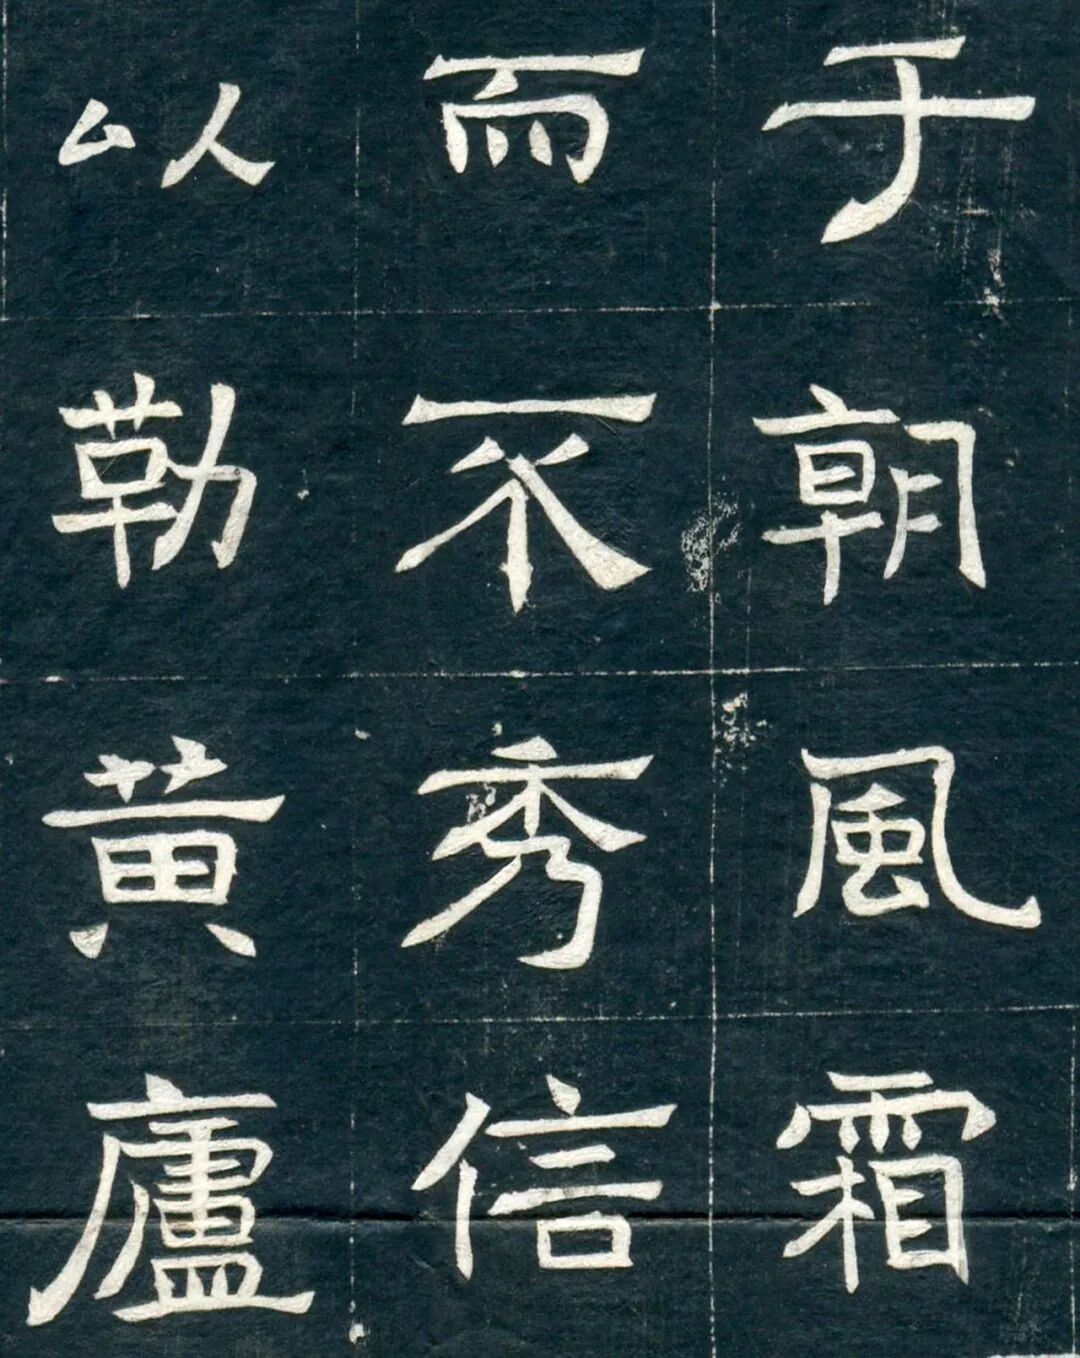 于朝風霜
而不秀信
以勒黃廬